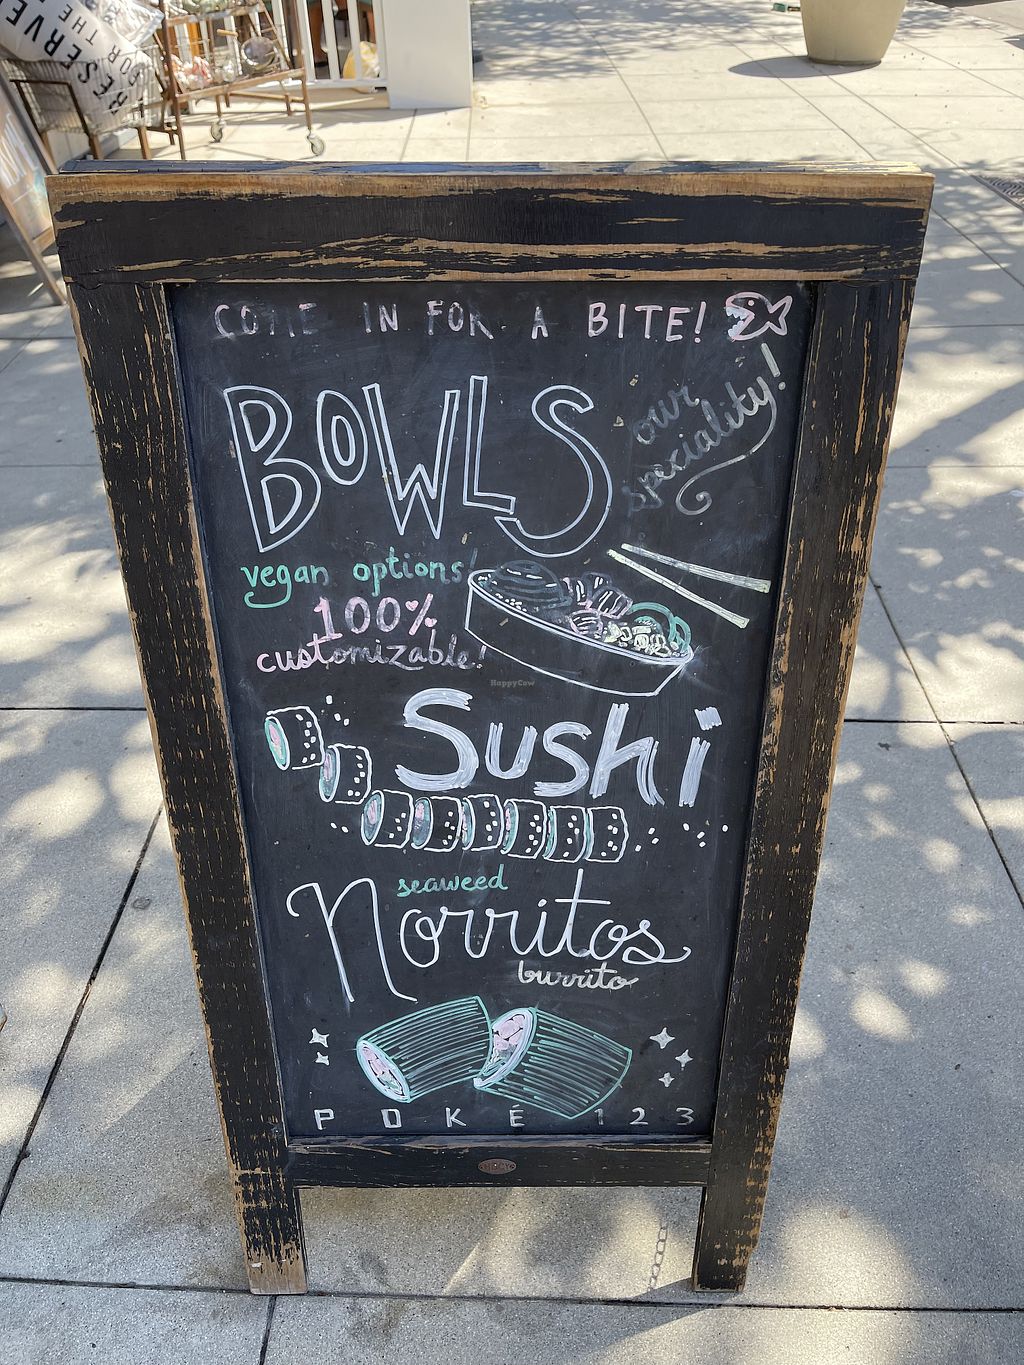 RESERVE
FOR THE
COME IN FOR A BITE!
BOWLS
our
speciality!
vegan options!
100%
customizable!
HappyCow
Sushi
seaweed
Norritos
burrito
POKÉ 123